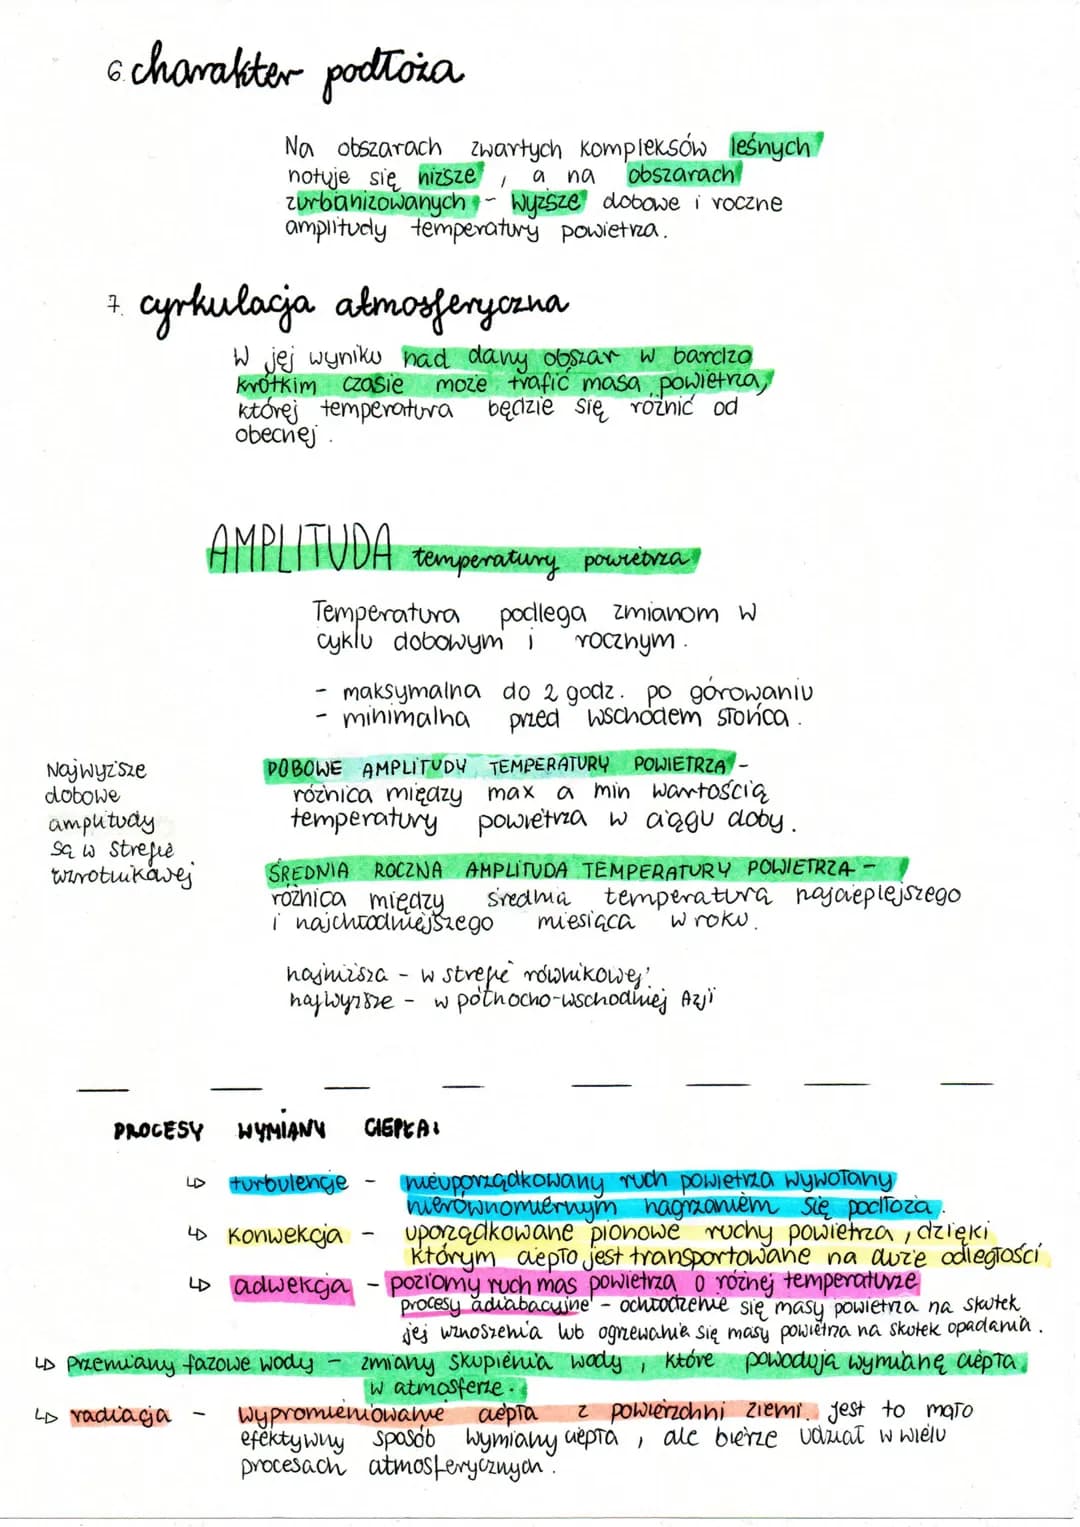 6. charakter podłoża
Na obszarach zwartych kompleksów leśnych
notuje się niższe, a na obszarach
zurbanizowanych - wyższe dobowe i roczne
amplitudy temperatury powietrza.
7. cyrkulacja atmosferyczna
W jej wyniku nad dany obszar w bardzo
krótkim czasie może trafić masa powietrza,
której temperatura będzie się różnić od
obecnej.
AMPLITUDA temperatury powietrza
Temperatura podlega zmianom w
cyklu dobowym i rocznym.
- maksymalna do 2 godz. po górowaniu
- minimalna przed wschodem słońca.
Najwyższe
dobowe
amplitudy
są w strefie
zwrotnikowej
DOBOWE AMPLITUDY TEMPERATURY POWIETRZA -
różnica między max a min wartością
temperatury powietrza w ciągu doby.
ŚREDNIA ROCZNA AMPLITUDA TEMPERATURY POWIETRZA -
różnica między średnią temperaturą najcieplejszego
i najchłodniejszego miesiąca w roku.
najniższa - w strefie równikowej
najwyższe - w północno-wschodniej Azji
PROCESY WYMIANY CIEPŁA:
↳ turbulencje - nieuporządkowany ruch powietrza wywołany
nierównomiernym nagrzaniem się podłoża.
↳ konwekcja - uporządkowane pionowe ruchy powietrza, dzięki
którym ciepło jest transportowane na duże odległości
↳ adwekcja - poziomy ruch mas powietrza o różnej temperaturze
procesy adiabacyjne - ochłodzenie się masy powietrza na skutek
jej wznoszenia lub ogrzewania się masy powietrza na skutek opadania.
↳ przemiany fazowe wody - zmiany skupienia wody, które powodują wymianę ciepła
w atmosferze.
↳ radiacja - wypromieniowanie ciepła z powierzchni ziemi. jest to mało
efektywny sposób wymiany ciepła, ale bierze udział w wielu
procesach atmosferycznych.